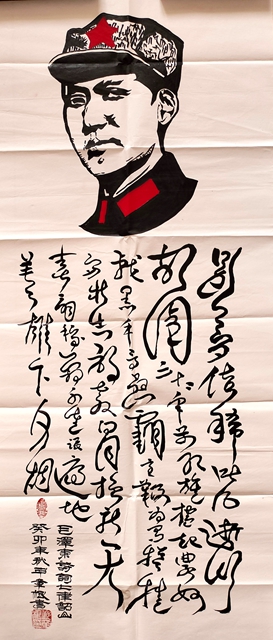 别夢依稀咒逝川
故園三十二年前红旗卷起農奴
戟黑手高悬霸主鞭为有犧牲
多壮志敢教日月换新天
喜看稻菽千重浪遍地
英雄下夕烟
毛澤東詩詞七律韶山
癸卯年秋